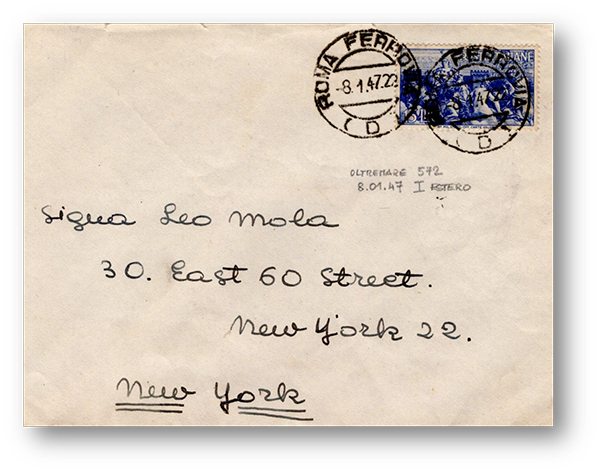 ROMA FERROVIA
-8.1.47.22
(D)
ROMA FERROVIA
-8.1.47.22
(D)
OLTREMARE 572
8.01.47 I ESTERO
Signa Leo Mola
30. East 60 Street.
New York 22.
New York